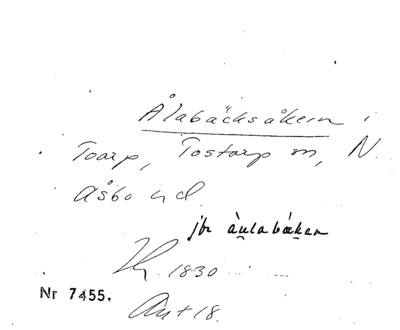 Ålabäcksåkern i
Toarp, Tostarp sn, N.
Åsbo hd.
jfr àulabákan
Hy. 1830
Nr 7455.
Ant 18.